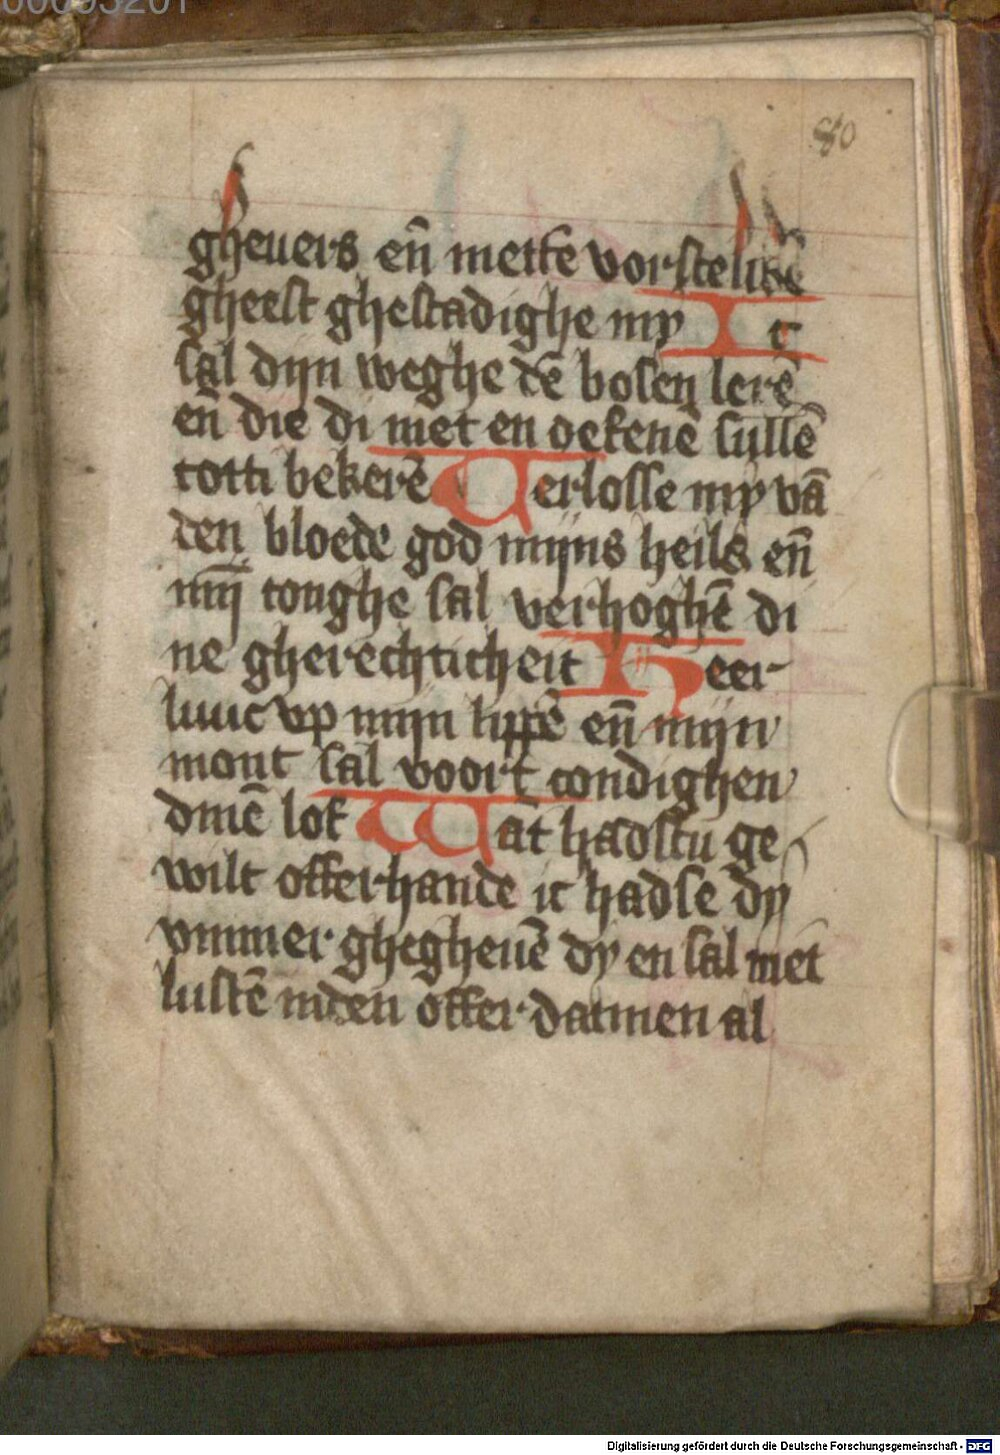 00093201
80
gheuers en̄ mette vorstelikē
gheest ghestadighe my Ic
sal dijn weghe dē bosen lerē
en̄ die di niet en oekenē sullē
totti bekerē Verlosse my vā
den bloede god mijns heils en̄
mij tonghe sal verhoghē di
ne gherechticheit Heer
luuc vp mijn lippē en̄ mijn
mont sal voort condighen
dinē lof Wāt hadstu ge
wilt offerhande ic hadse dy
vmmer ghegheuē dy en sal niet
lustē inden offer datmen al
Digitalisierung gefördert durch die Deutsche Forschungsgemeinschaft - DFG